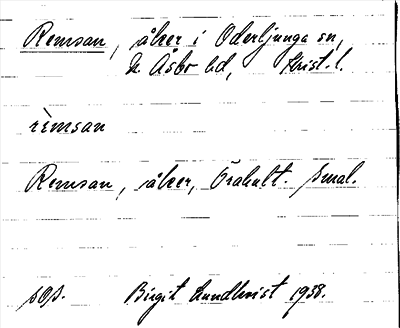 Remsan, åker i Oderljunga sn,
N. Åsbo hd, Krist. l.
rèmsan
Remsan, åker, Örahult. Smal.
sOp. Birgit Lundkvist 1938.